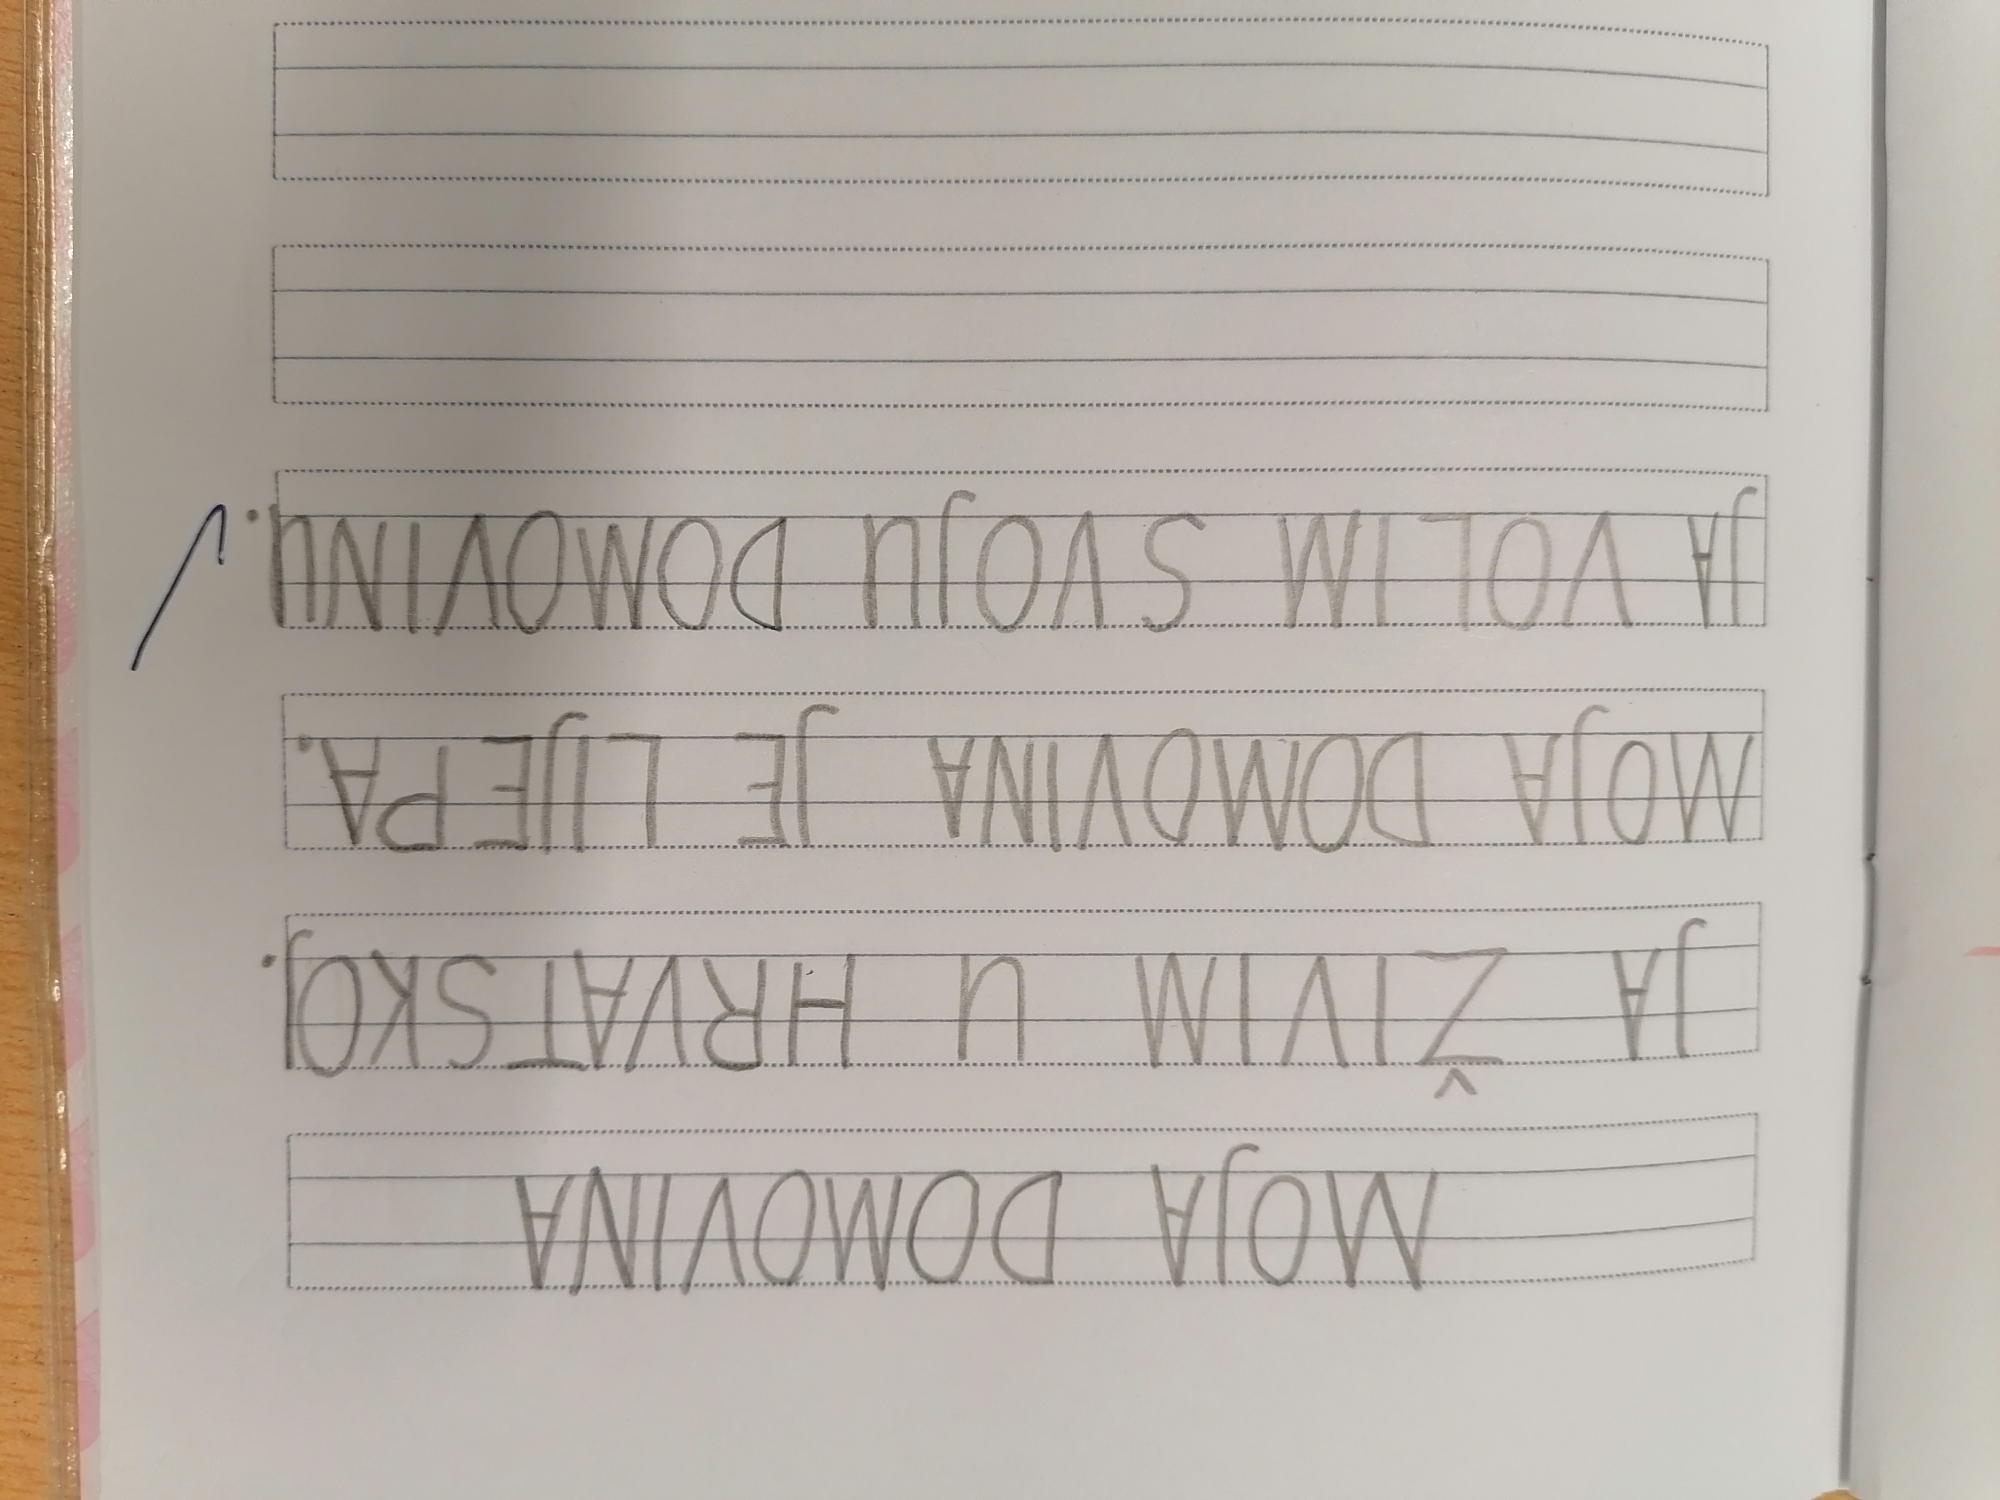 MOJA DOMOVINA
JA ŽIVIM U HRVATSKOJ.
MOJA DOMOVINA JE LIJEPA.
JA VOLIM SVOJU DOMOVINU.